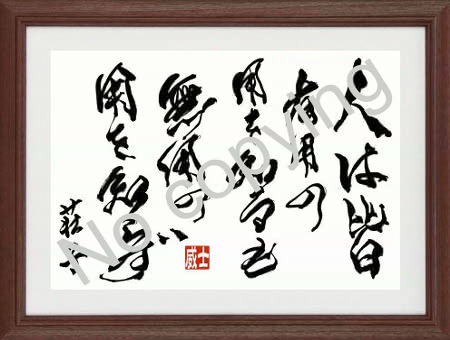 人は皆
有用の
用を知
無用の
用を知
荘子
No copying